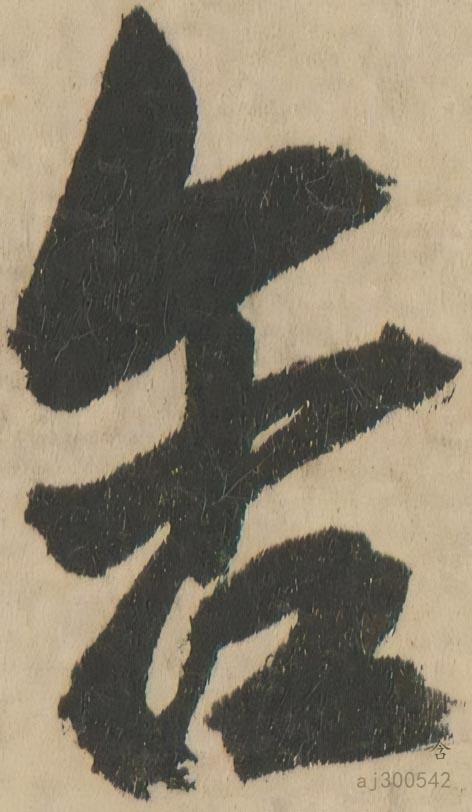 告
含
aj300542